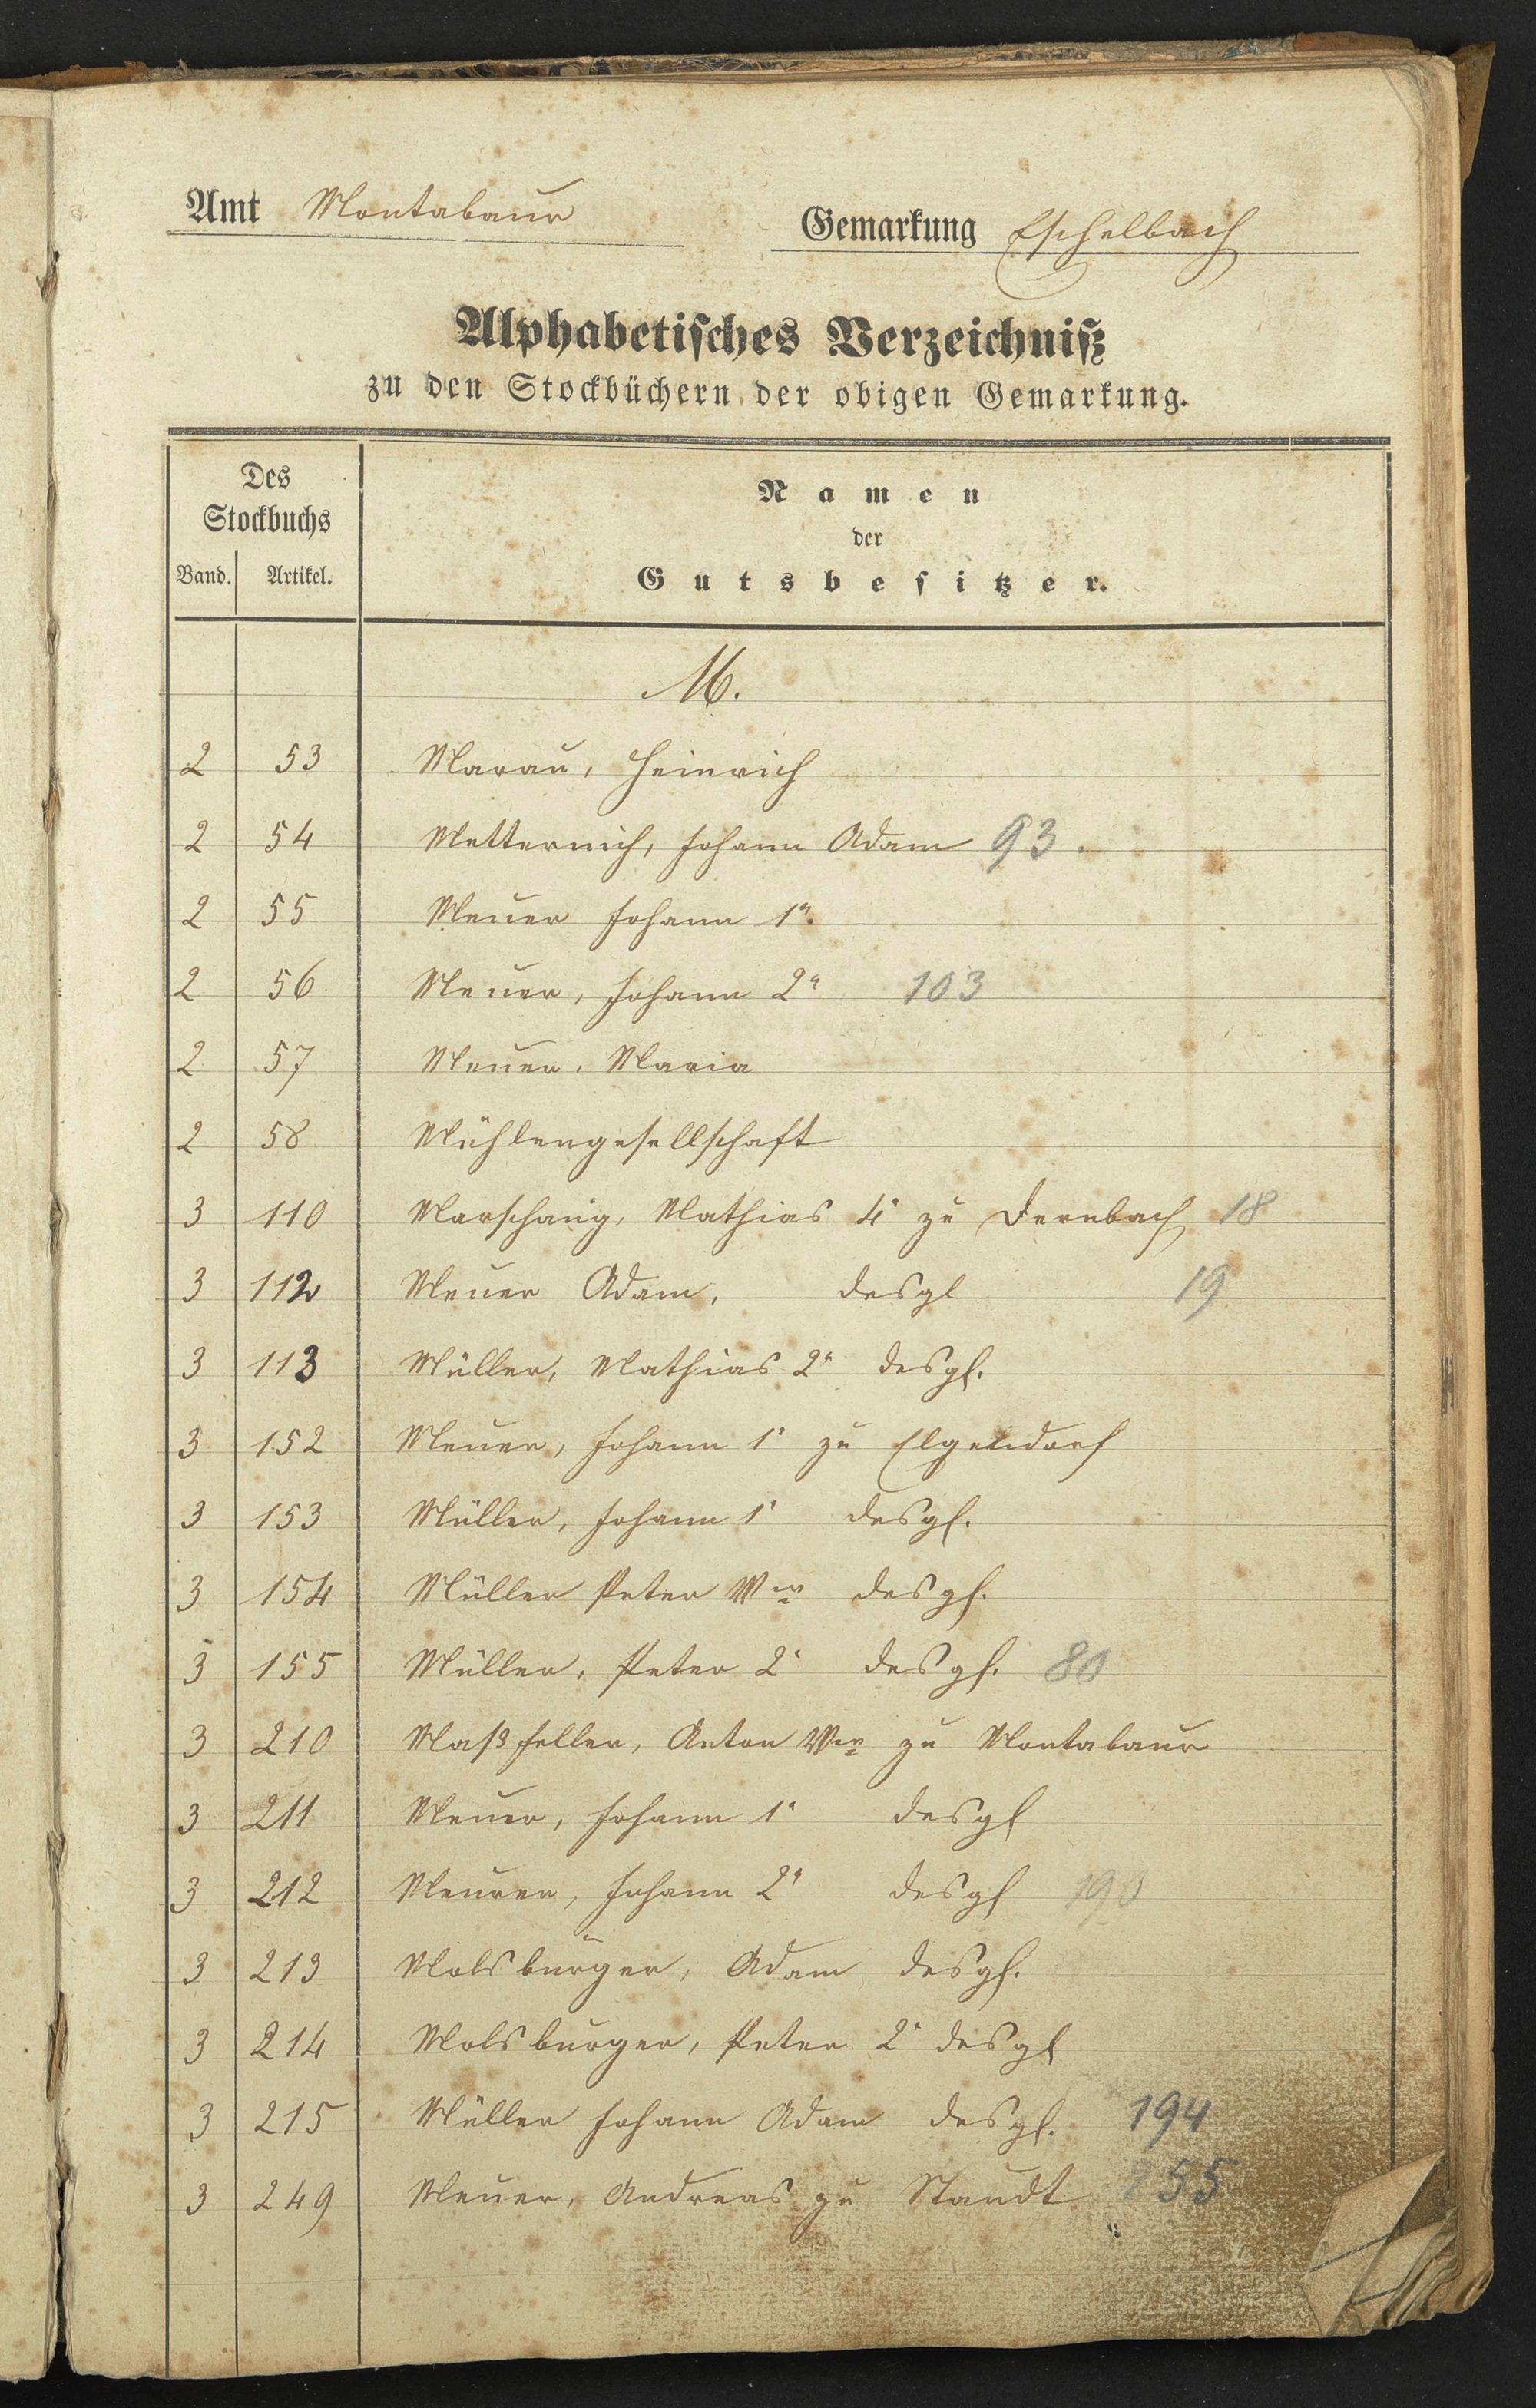 Amt Montabaur
Gemarkung Eschelbach
Alphabetisches Verzeichniß
zu den Stockbüchern der obigen Gemarkung.
Des Stockbuchs
Band. Artikel.
Namen
der
Gutsbesitzer.
M.
2 53 Marau, Heinrich
2 54 Metternich, Johann Adam 93.
2 55 Meuer Johann 1r
2 56 Meuer, Johann 2r 103
2 57 Meuer, Maria
2 58 Mühlengesellschaft
3 110 Marschang, Mathias 4r zu Dernbach 18
3 112 Meuer Adam, desgl 19
3 113 Müller, Mathias 2r desgl.
3 152 Meuer, Johann 1r zu Elgendorf
3 153 Müller, Johann 1r desgl.
3 154 Müller Peter Wwe desgl.
3 155 Müller, Peter 2r desgl. 80
3 210 Maßfeller, Anton Wwe zu Montabaur
3 211 Meuer, Johann 1r desgl
3 212 Meurer, Johann 2r desgl 190
3 213 Molsburger, Adam desgl.
3 214 Molsburger, Peter 2r desgl
3 215 Müller Johann Adam desgl. 194
3 249 Meuer, Andreas zu Staudt 255